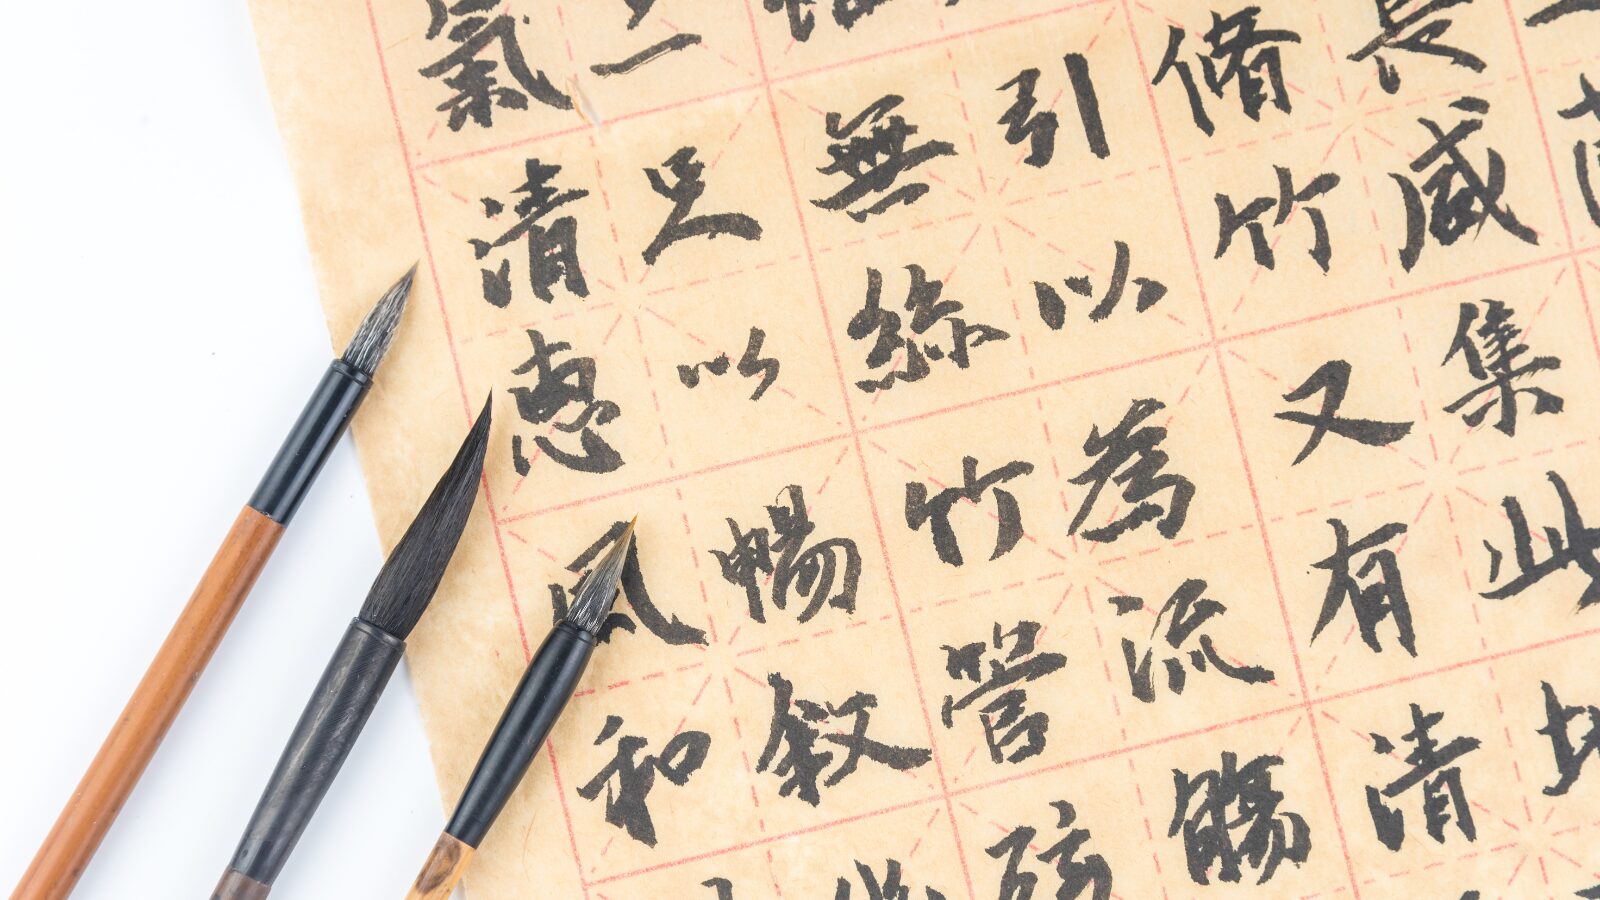 長咸集此地
脩竹又有清
引以為流觴
無絲竹管弦
足以暢叙
氣清惠風和